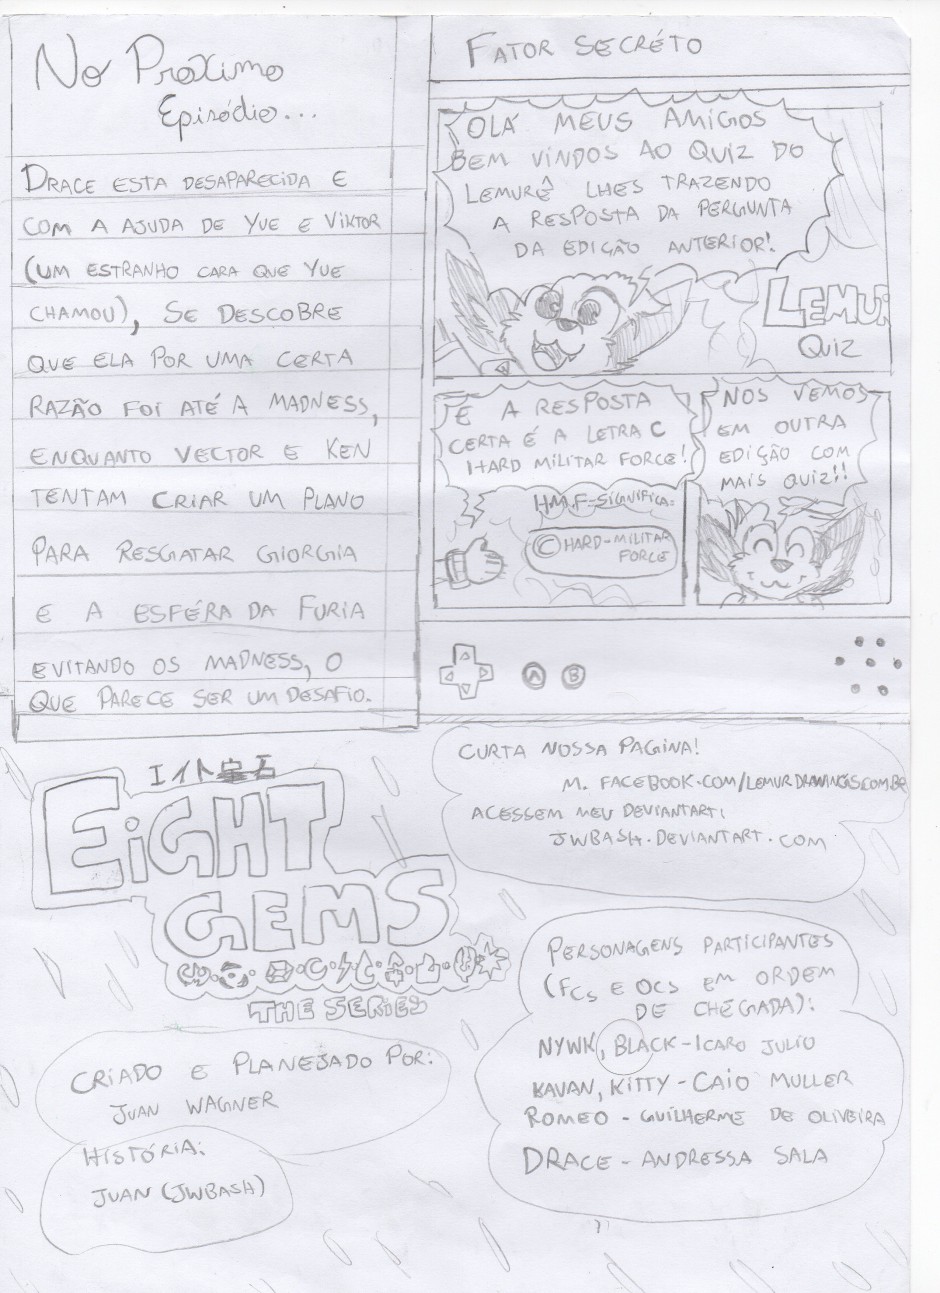 No Próximo
Episódio...
DRACE ESTA DESAPARECIDA E
COM A AJUDA DE YUE E VIKTOR
(UM ESTRANHO CARA QUE YUE
CHAMOU), SE DESCOBRE
QUE ELA POR UMA CERTA
RAZÃO FOI ATÉ A MADNESS,
ENQUANTO VECTOR E KEN
TENTAM CRIAR UM PLANO
PARA RESGATAR GIORGIA
E A ESFÉRA DA FURIA
EVITANDO OS MADNESS, O
QUE PARECE SER UM DESAFIO.
FATOR SECRÉTO
OLÁ MEUS AMIGOS
BEM VINDOS AO QUIZ DO
LEMURÊ LHES TRAZENDO
A RESPOSTA DA PERGUNTA
DA EDIÇÃO ANTERIOR!
LEMUR
QUIZ
E A RESPOSTA
CERTA É A LETRA C
HARD MILITAR FORCE!
H.M.F-SIGNIFICA:
© HARD-MILITAR
FORCE
NOS VEMOS
EM OUTRA
EDIÇÃO COM
MAIS QUIZ!!
A B
エイト宝石
EIGHT
GEMS
THE SERIES
CURTA NOSSA PAGINA!
M.FACEBOOK.COM/LEMURDRAWINGS.COM.BR
ACESSEM MEU DEVIANTART:
JWBASH.DEVIANTART.COM
CRIADO E PLANEJADO POR:
JUAN WAGNER
HISTÓRIA:
JUAN (JWBASH)
PERSONAGENS PARTICIPANTES
(FCS E OCS EM ORDEM
DE CHEGADA):
NYWK, BLACK-ICARO JULIO
KAVAN, KITTY-CAIO MULLER
ROMEO - GUILHERME DE OLIVEIRA
DRACE - ANDRESSA SALA